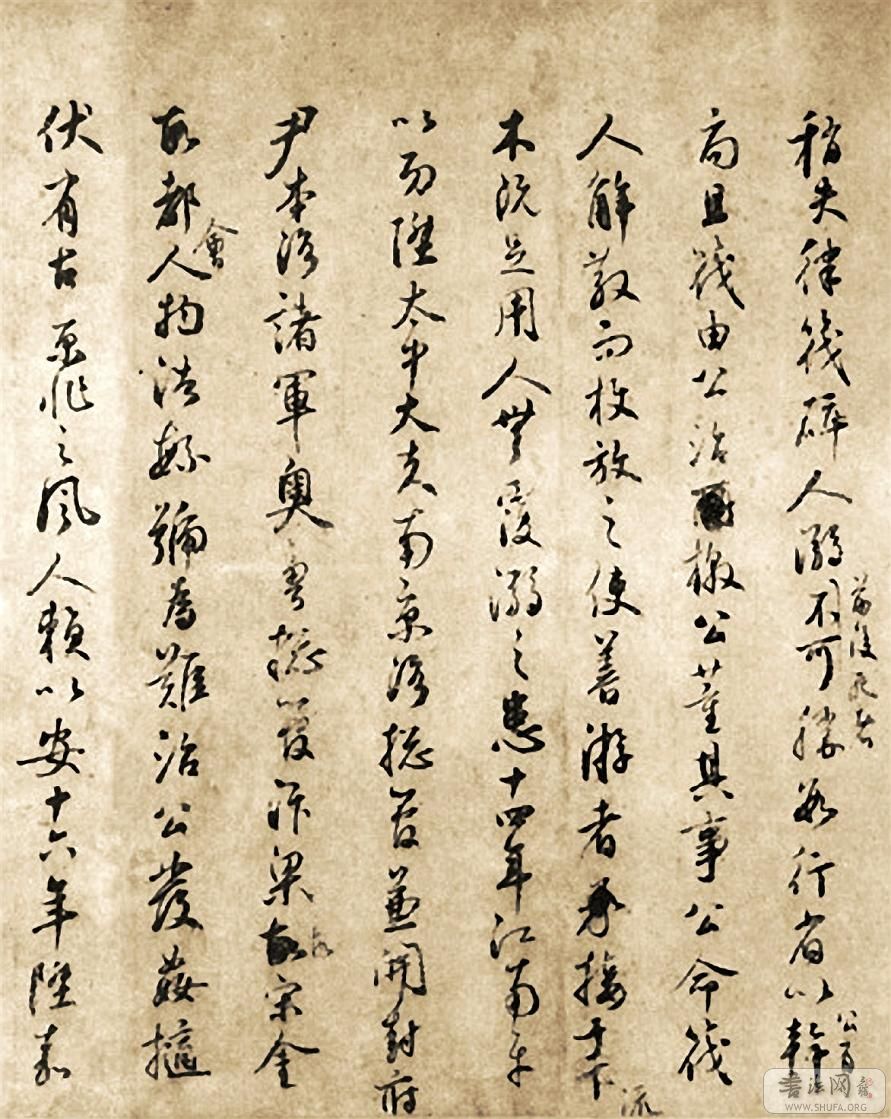 稍失律筏碎人溺不可勝數行省以幹
前後死者
公有
局且筏由公治檄公董其事公命筏
人解散而枚放之使善游者承接于下
流
木既足用人無覆溺之患十四年江南平
以功陞太中大夫南京路總管兼開封府
尹本路諸軍奧魯總管汴梁故宋金
故都人物浩繁號為難治公發姦擿
會
伏有古之風人賴以安十六年陞嘉
書法网
WWW.SHUFA.ORG